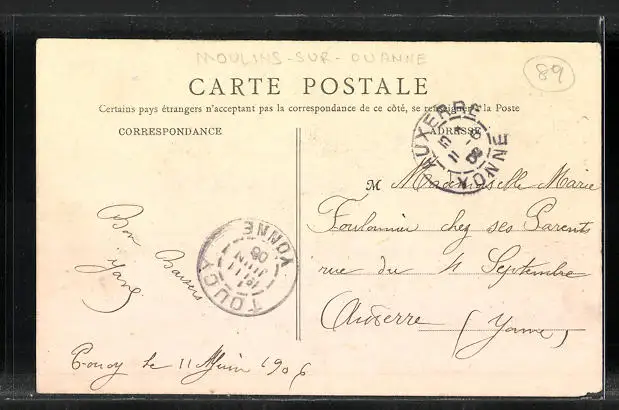 MOULINS-SUR-OUANNE
89
CARTE POSTALE
Certains pays étrangers n'acceptant pas la correspondance de ce côté, se renseigner à la Poste
CORRESPONDANCE
ADRESSE
AUXERRE
YONNE
M Mademoiselle Marie
Foulonnier chez ses Parents
rue du 4 Septembre
Auxerre (Yonne)
Bon
Baisers
TOUCY
YONNE
11
JUIN
06
Toucy le 11 Juin 1906